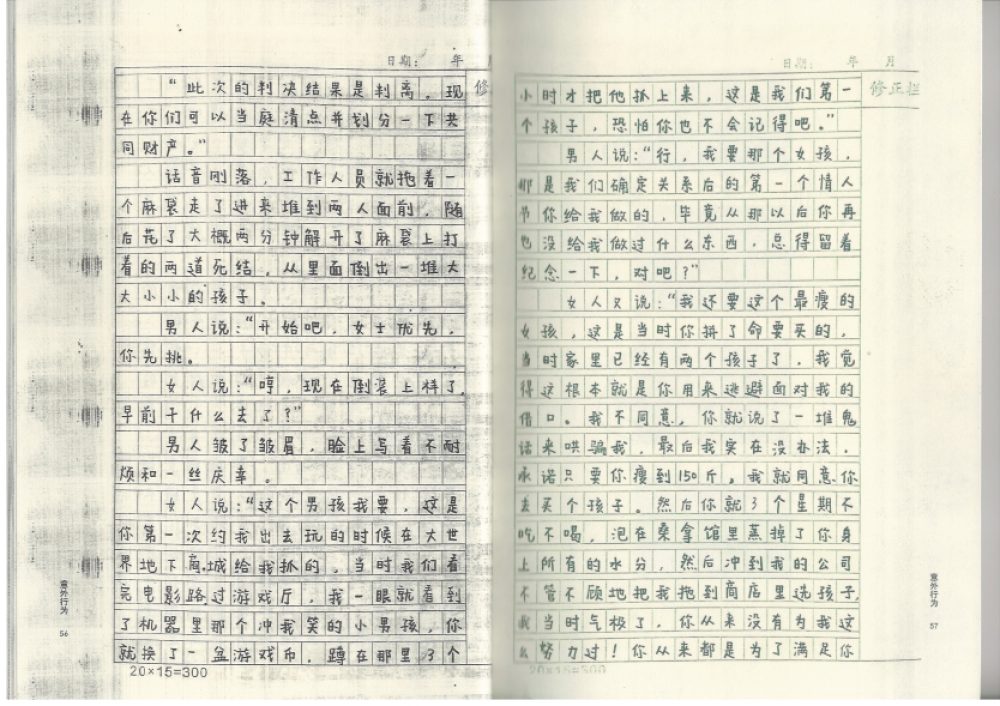 日期： 年 月
修
“此次的判决结果是判离。现
在你们可以当庭清点并划分一下共
同财产。”
话音刚落，工作人员就拖着一
个麻袋走了进来堆到两人面前，随
后花了大概两分钟解开了麻袋上打
着的两道死结，从里面倒出一堆大
大小小的孩子。
男人说：“开始吧，女士优先，
你先挑。
女人说：“哼，现在倒装上样了，
早前干什么去了？”
男人皱了皱眉，脸上写着不耐
烦和一丝庆幸。
女人说：“这个男孩我要，这是
你第一次约我出去玩的时候在大世
界地下商城给我抓的，当时我们看
完电影路过游戏厅，我一眼就看到
了机器里那个冲我笑的小男孩，你
就换了一盆游戏币，蹲在那里3个
20×15=300
意外行为
56
日期： 年 月
修正栏
小时才把他抓上来，这是我们第一
个孩子，恐怕你也不会记得吧。”
男人说：“行，我要那个女孩，
那是我们确定关系后的第一个情人
节你给我做的，毕竟从那以后你再
也没给我做过什么东西，总得留着
纪念一下，对吧？”
女人又说：“我还要这个最瘦的
女孩，这是当时你拼了命要买的，
当时家里已经有两个孩子了，我觉
得这根本就是你用来逃避面对我的
借口。我不同意，你就说了一堆鬼
话来哄骗我，最后我实在没办法，
承诺只要你瘦到150斤，我就同意你
去买个孩子。然后你就3个星期不
吃不喝，泡在桑拿馆里蒸掉了你身
上所有的水分，然后冲到我的公司
不管不顾地把我拖到商店里选孩子，
我当时气极了，你从来没有为我这
么努力过！你从来都是为了满足你
20×15=300
意外行为
57